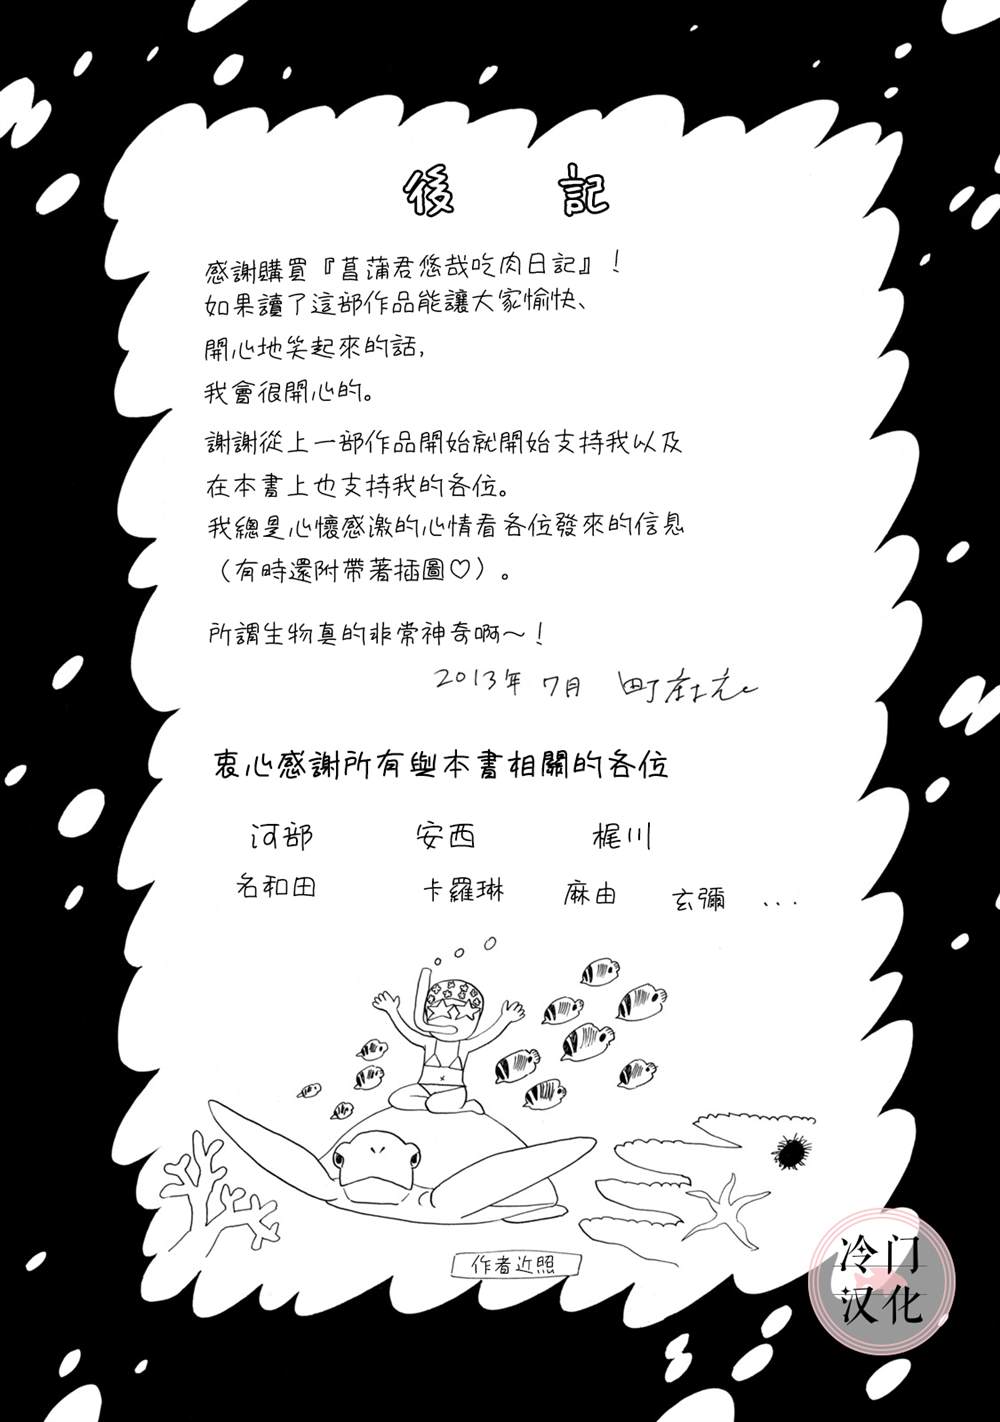 後記
感謝購買『菖蒲君悠哉吃肉日記』!
如果讀了這部作品能讓大家愉快、
開心地笑起來的話,
我會很開心的。
謝謝從上一部作品開始就開始支持我以及
在本書上也支持我的各位。
我總是心懷感激的心情看各位發來的信息
(有時還附帶著插圖♡)。
所謂生物真的非常神奇啊~!
2013年 7月 町
衷心感謝所有與本書相關的各位
河部 安西 梶川
名和田 卡羅琳 麻由 玄彌 ...
作者近照
冷门
汉化